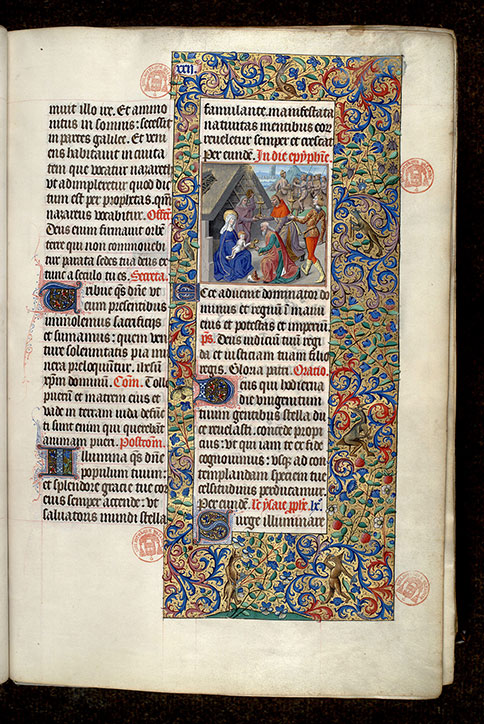 xxii.
muit illo ire. Et ammo
nitus in somnis: secessit
in partes galilee. Et veni
ens habitauit in ciuita
tem que vocatur nazareth
vt adimpleretur quod dic
tum est per prophetas. qm̄
nazareus vocabitur. Offert.
Deus enim firmauit orbē
terre qui non commouebi
tur parata sedes tua deus ex
tunc a seculo tu es. Secreta.
Tribue q̄s dn̄e vt
eum presentibus
immolemus sacrificijs
et sumamus: quem ven
ture solennitatis pia mu
nera preloquūtur. ihesum
xp̄m dominū. Com̄. Tolle
puerū et matrem eius et
vade in terram iuda defūc
ti sunt enim qui querebāt
animam pueri. Postcom̄.
Illumina q̄s dn̄e
populum tuum
et splendore gracie tue cor
eius semper accende: vt
saluatoris mundi stella
famulante. manifestata
natiuitas mentibus eorū
reueletur semper et crescat
Per eundē. In die epyphīe.
Ecce aduenit dominator do
minus et regnū ī manu
eius et potestas et imperiū
ps̄. Deus iudiciū tuū regi
da et iusticiam tuam filio
regis. Gloria patri. Oracio
Deus qui hodierna
die vnigenitum
tuum gentibus stella du
ce reuelasti. concede propici
us: vt qui iam te ex fide
cognouimus: vsq̄ ad con
templandam speciem tue
celsitudinis perducamur.
Per eundē. lc̄ ysaie pphe lx.
Surge illuminare